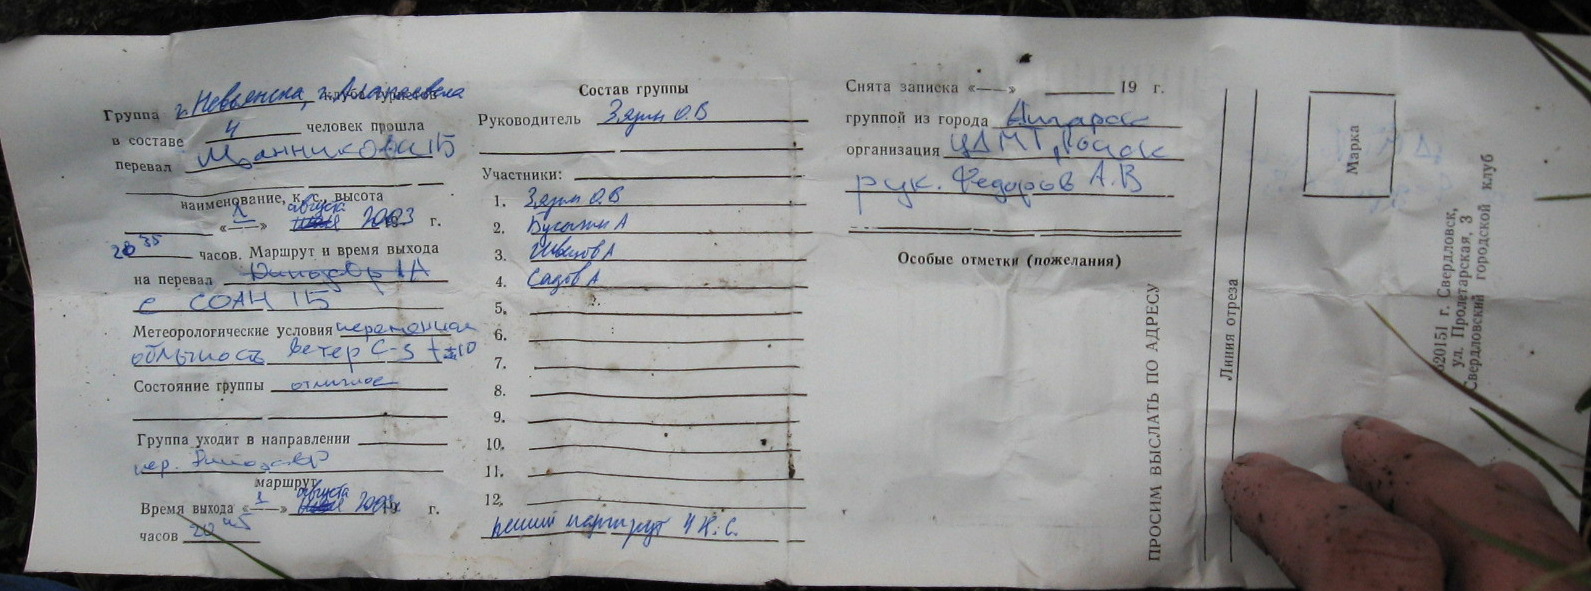 Группа г. Невьянска, г. Алапаевска клуба туристов
в составе 4 человек прошла
перевал Манникова 1Б
наименование, к. с., высота
«1» августа 2003 г.
20 35 часов. Маршрут и время выхода
на перевал Динозавр 1А
с СОАН 1Б
Метеорологические условия переменная
облчность ветер С-З +10
Состояние группы отличное
Группа уходит в направлении
пер. Динозавр
маршрут
Время выхода «1» августа г.
часов 20 45
Состав группы
Руководитель Зязин О.В
Участники:
1. Зязин О.В
2. А
3. Швецов А
4. Садов А
5.
6.
7.
8.
9.
10.
11.
12.
пеший маршрут 4 к.с.
Снята записка «—» 19 г.
группой из города Ангарск
организация ЦДМТ, Поиск
рук. Федоров А.В
Особые отметки (пожелания)
ПРОСИМ ВЫСЛАТЬ ПО АДРЕСУ
Линия отреза
Марка
620151 г. Свердловск,
ул. Пролетарская, 3
Свердловский городской клуб